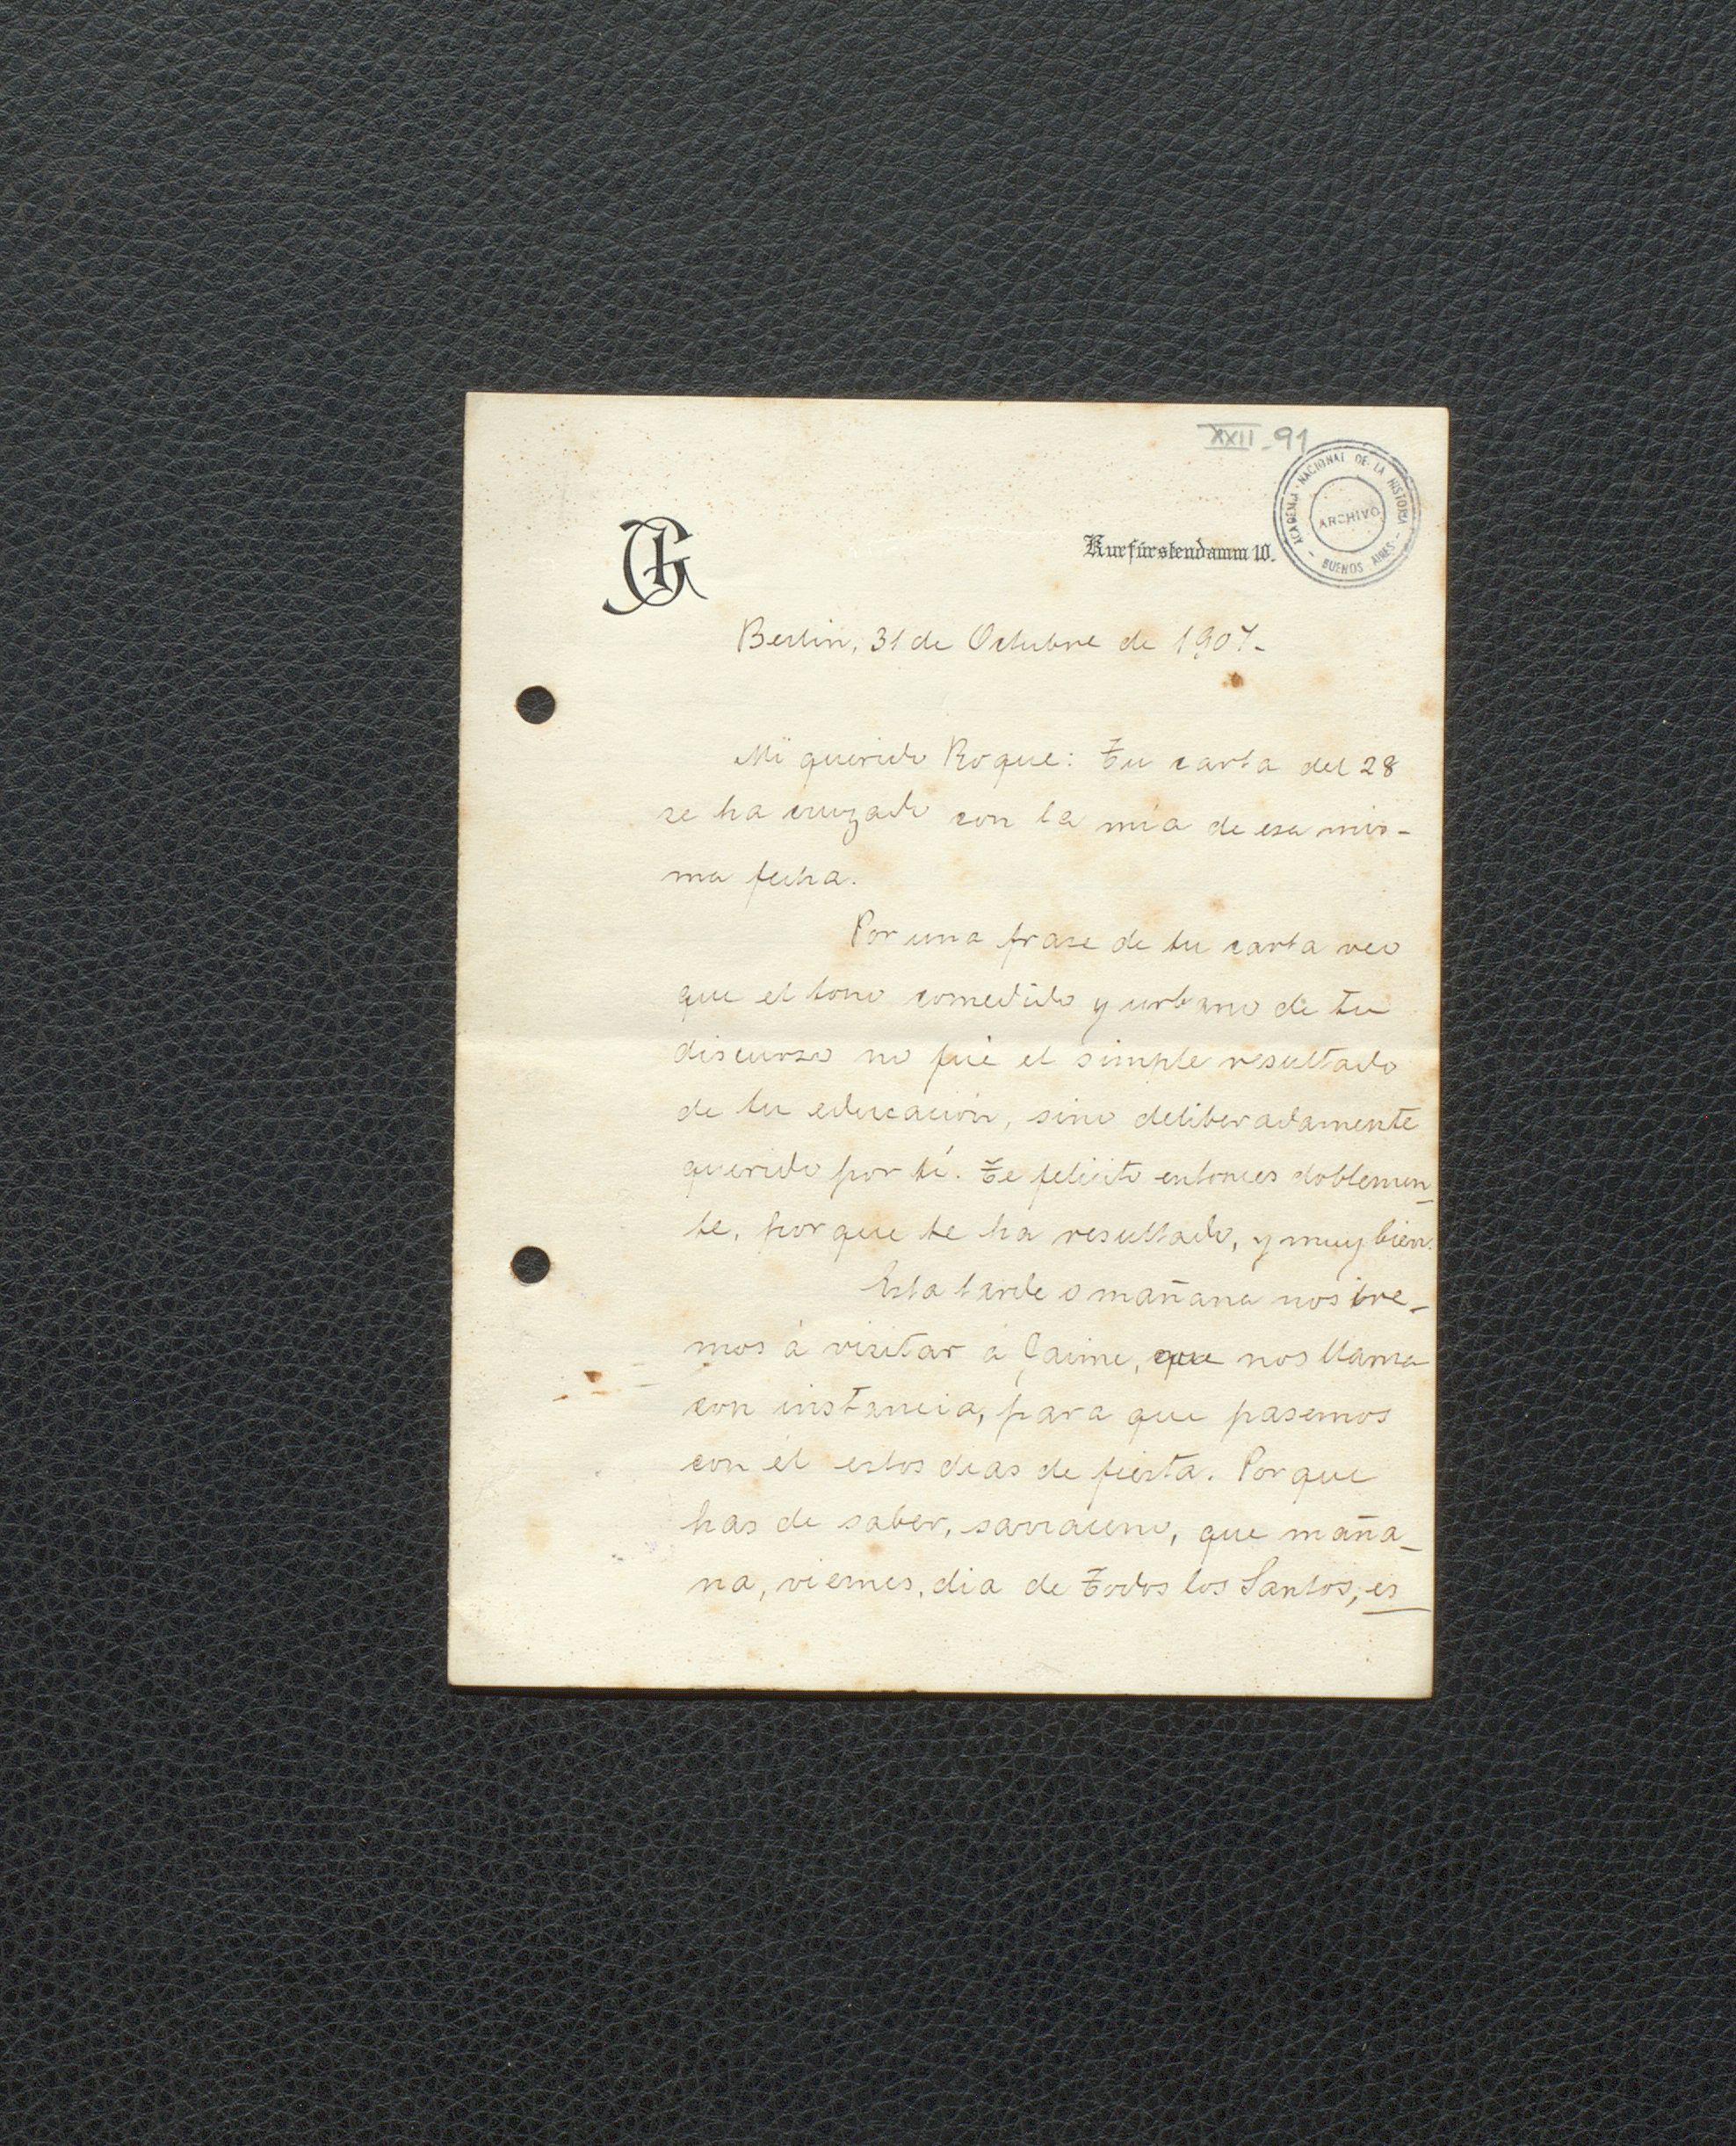 XXII-91
ACADEMIA NACIONAL DE LA HISTORIA
ARCHIVO
BUENOS AIRES
Kurfürstendamm 10.
Berlin, 31 de Octubre de 1907.-
Mi querido Roque: Tu carta del 28
se ha cruzado con la mía de esa mis-
ma fecha.
Por una frase de tu carta veo
que el tono comedido y urbano de tu
discurso no fué el simple resultado
de tu educación, sino deliberadamente
querido por tí. Te felicito entonces doblemen-
te, porque te ha resultado, y muy bien.
Esta tarde o mañana nos ire-
mos á visitar á Jaime, que nos llama
con instancia, para que pasemos
con él estos dias de fiesta. Porque
has de saber, sarraceno, que maña-
na, viernes, dia de Todos los Santos, es